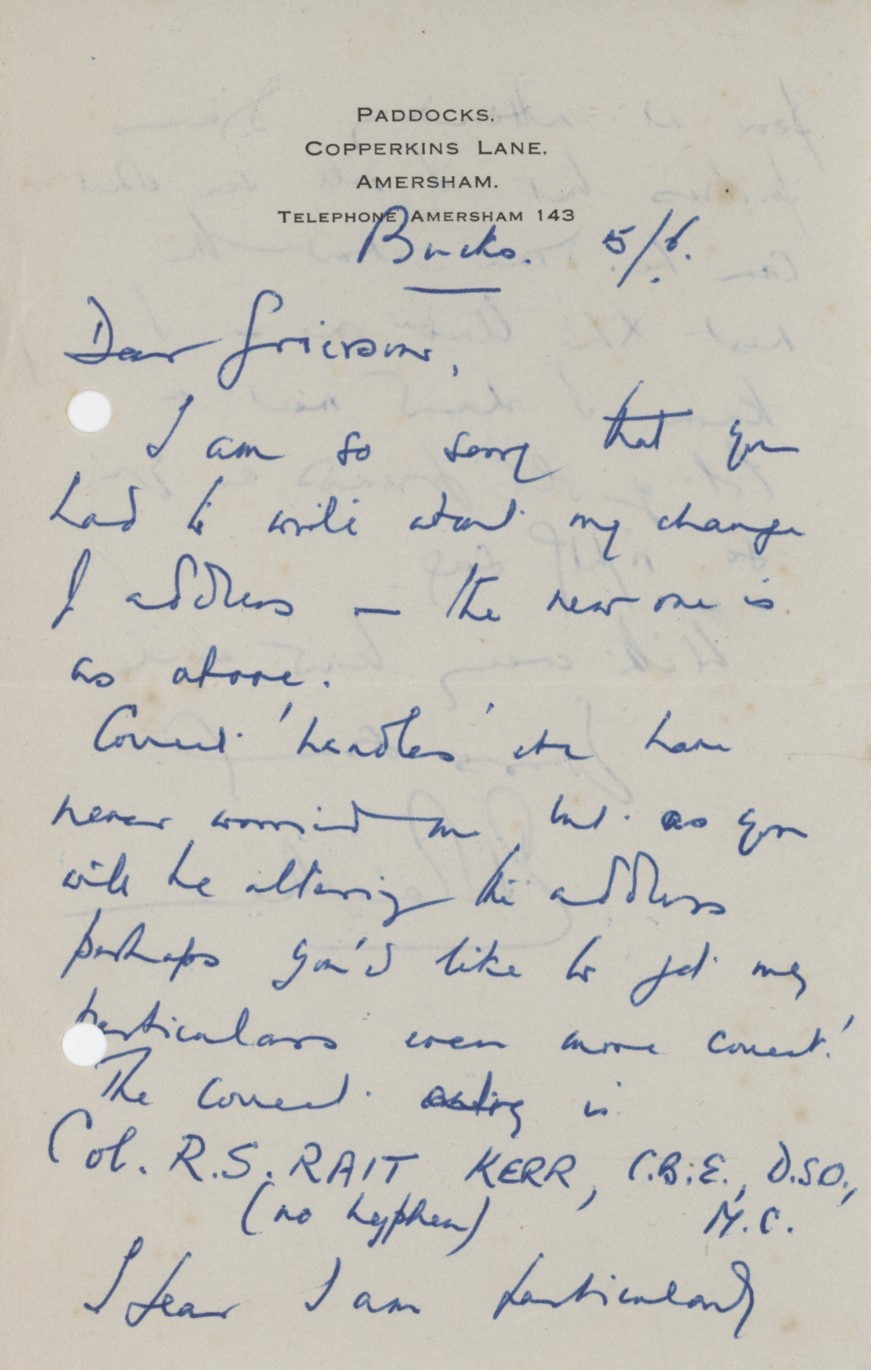 PADDOCKS.
COPPERKINS LANE.
AMERSHAM.
TELEPHONE AMERSHAM 143
Bucks. 5/6.
Dear Grierson,
I am so sorry that you
had to write about my change
of address — the new one is
as above.
Correct 'handles' etc have
never worried me but as you
will be altering the address
perhaps you'd like to get my
particulars even more correct!
The correct is
Col. R.S. RAIT KERR, C.B.E., D.S.O.,
(no hyphen) M.C.
I fear I am particularly